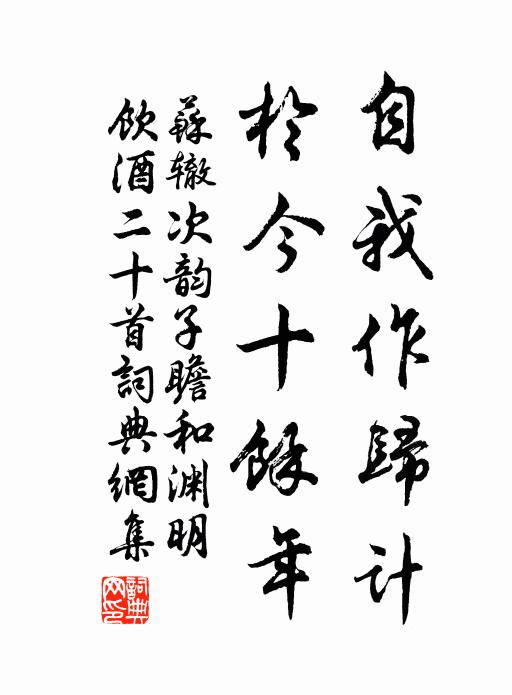 自我作歸計
於今十餘年
蘇辙次韵子瞻和渊明
飲酒二十首詞典網集
詞典网印